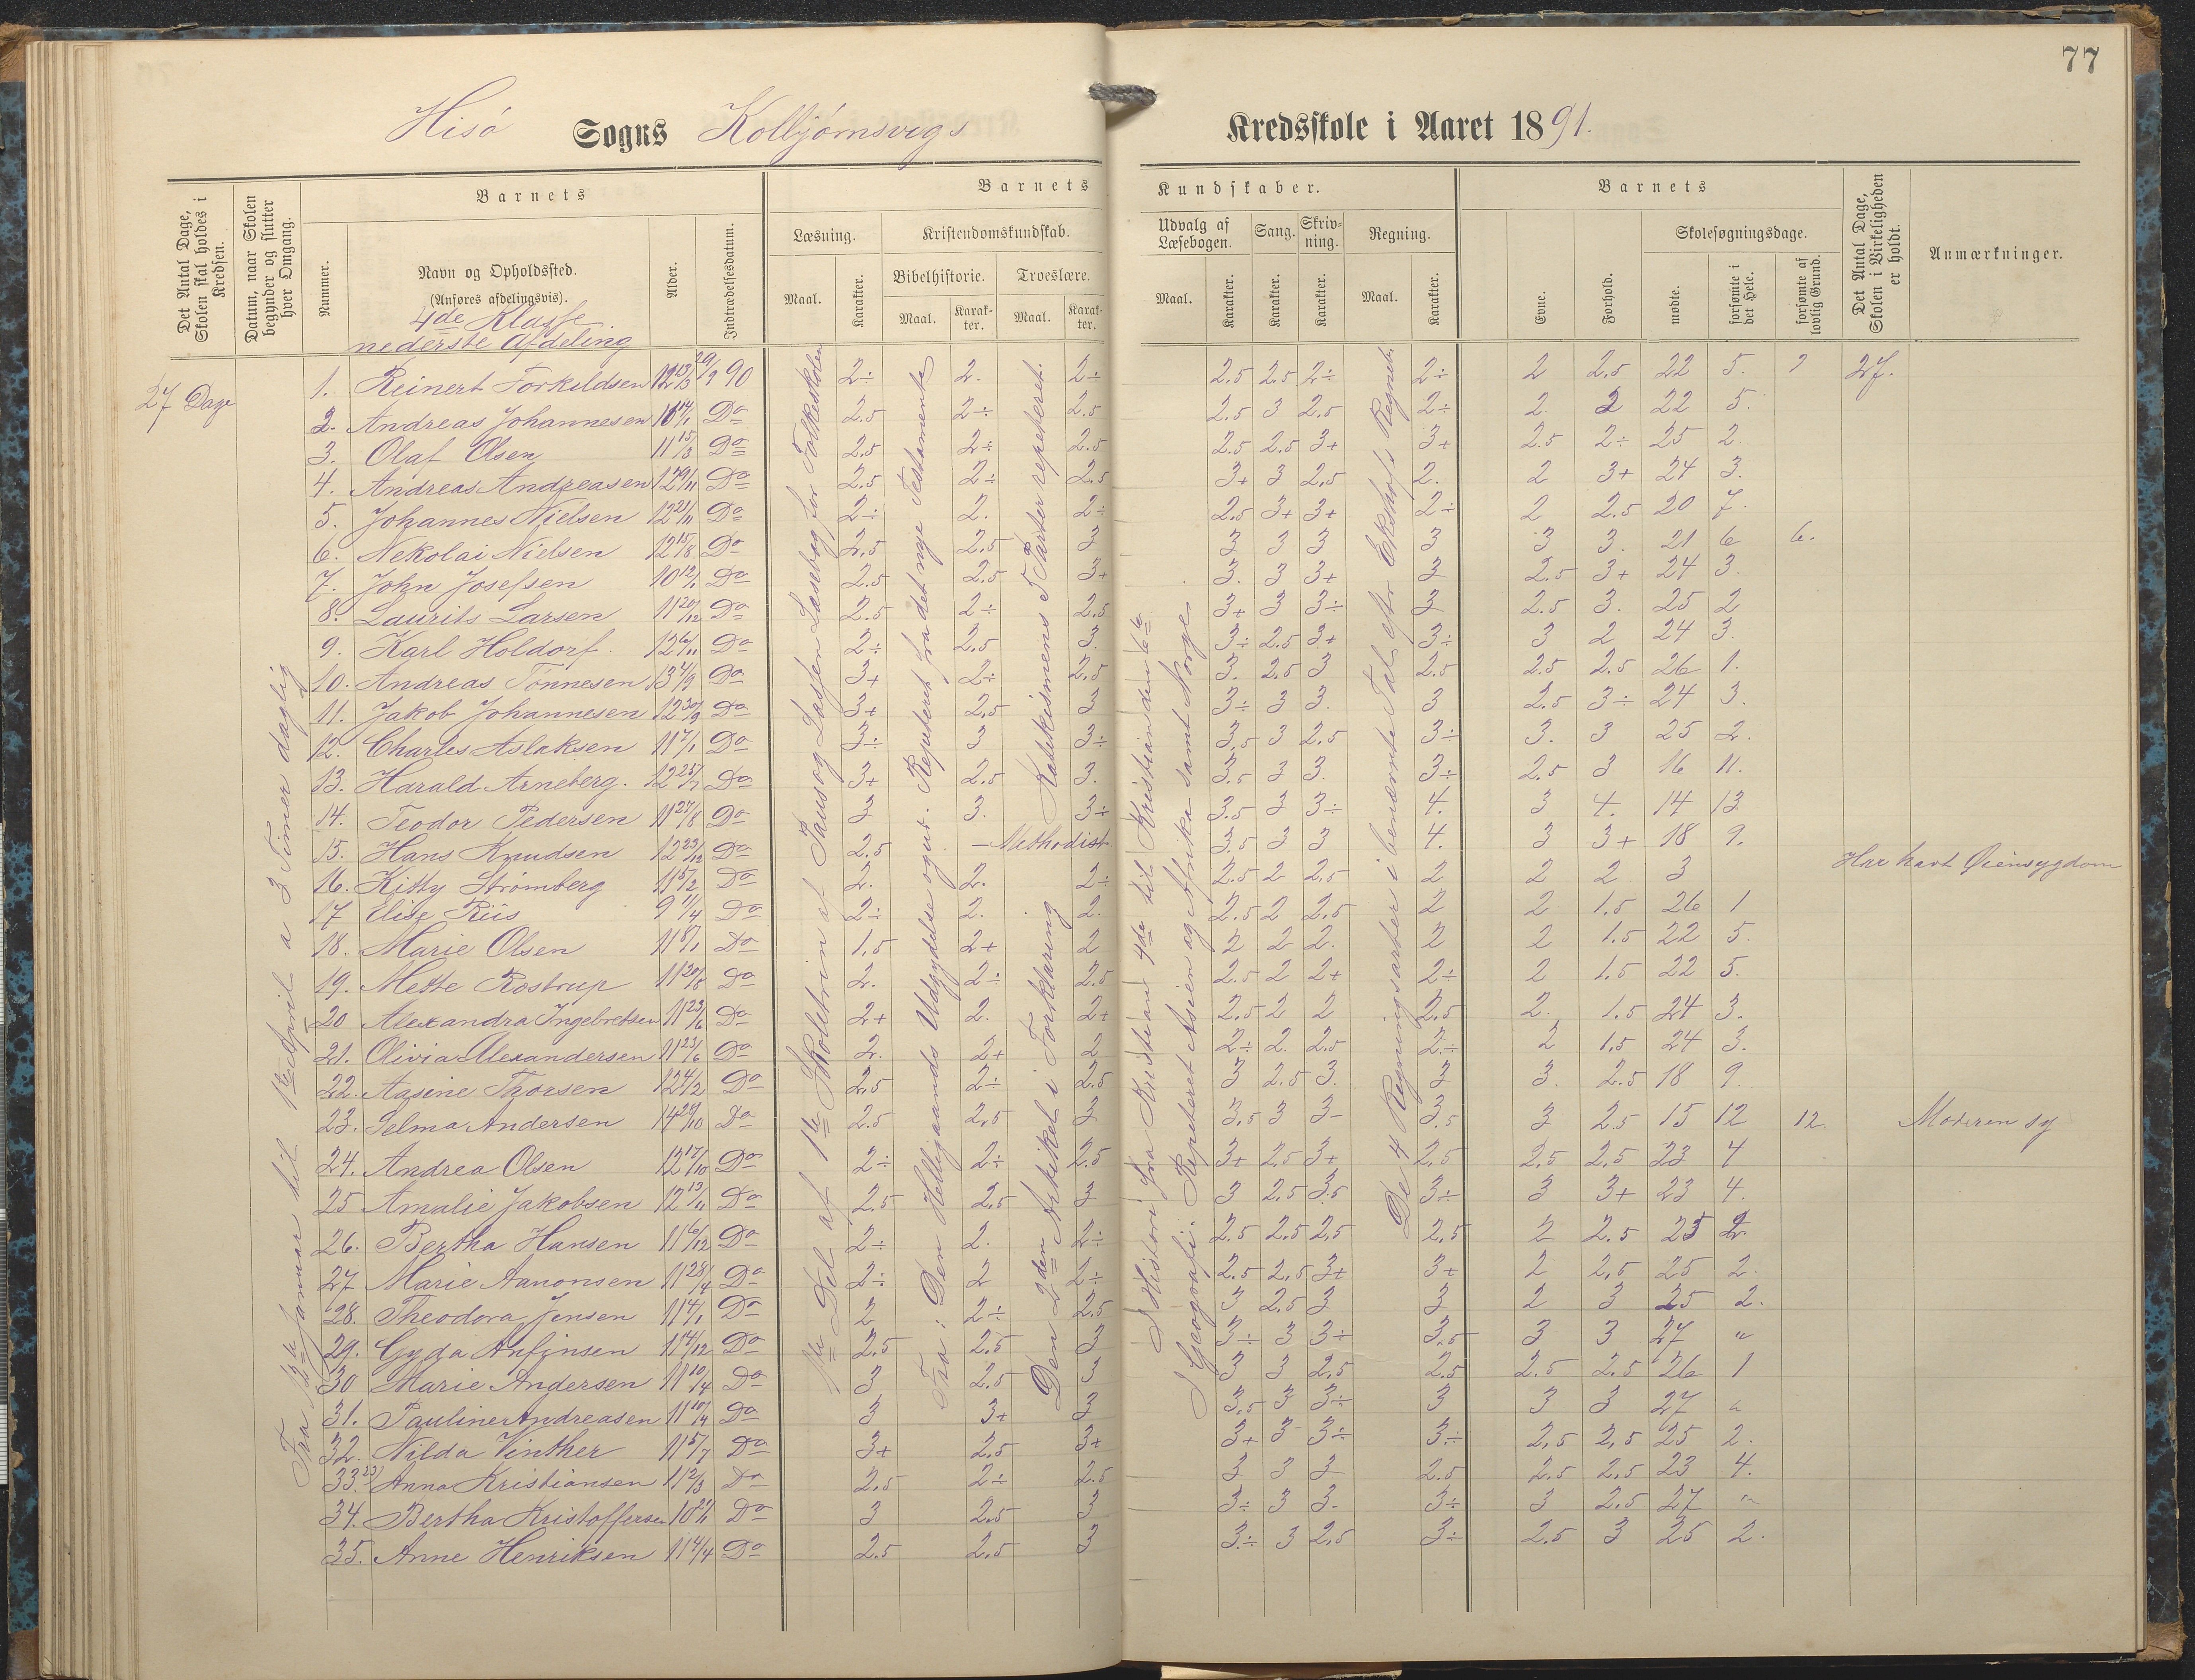 77
Hisö Sogns Kolbjørnsvigs Kredsskole i Aaret 1891.
Det Antal Dage, Skolen skal holdes i Kredsen.
Datum, naar Skolen begynder og slutter hver Omgang.
Barnets
Nummer.
Navn og Opholdssted.
(Anføres afdelingsvis).
Alder.
Indtrædelsesdatum.
Barnets Kundskaber.
Læsning.
Kristendomskundskab.
Udvalg af Læsebogen.
Sang.
Skrivning.
Regning.
Bibelhistorie.
Troeslære.
Maal.
Karakter.
Maal.
Karakter.
Maal.
Karakter.
Maal.
Karakter.
Karakter.
Karakter.
Maal.
Karakter.
Barnets
Evne.
Forhold.
Skolesøgningsdage.
mødte.
forsømte i det Hele.
forsømte af lovlig Grund.
Det Antal Dage, Skolen i Virkeligheden er holdt.
Anmærkninger.
4de Klasse
nederste Afdeling
27 Dage
Fra Januar til 1ste April a 3 Timer daglig
1ste Del af 1ste Skoletrin af Pauss og Lassen Læsebog for Folkeskolen
Fra: Den Helligaands Udgydelse ogut. Repeteret fra det nye Testamente
Den 2den Artikel i Forklaring
Katekismens 5 Parter repeteret.
I Historie fra Kristian 4de til Kristian den 6te
I Geografi: Repeteret Asien og Afrika samt Norge.
De 4 Regningsarter i benævnte Tal efter Ekshofs Regneb.
1. Reinert Torkildsen 12 13/3 29/9 90 2÷ 2. 2÷ 2.5 2.5 2÷ 2÷ 2 2.5 22 5. 27.
2. Andreas Johannesen Do 2.5 2÷ 2.5 2.5 3 2.5 2÷ 2. 2 22 5.
3. Olaf Olsen 11 15/3 Do 2.5 2÷ 2.5 2.5 2.5 3+ 3+ 2.5 2÷ 25 2.
4. Andreas Andreasen 12 29/11 Do 2.5 2÷ 2.5 3+ 3 2.5 2. 2 3+ 24 3.
5. Johannes Nielsen 12 21/11 Do 2÷ 2. 2÷ 2.5 3+ 3+ 2÷ 2 2.5 20 7.
6. Nekolai Nielsen 12 15/8 Do 2.5 2.5 3 3 3 3 3 3 3. 21 6 6.
7. John Josefsen 10 12/1 Do 2.5 2.5 3+ 3. 3 3+ 3 2.5 3+ 24 3.
8. Laurits Larsen 11 20/12 Do 2.5 2÷ 2.5 3+ 3 3÷ 3 2.5 3. 25 2
9. Karl Holdorf. 12 6/11 Do 2÷ 2.5 3. 3÷ 2.5 3+ 3÷ 3 2 24 3.
10. Andreas Tønnesen 13 4/9 Do 3+ 2÷ 2.5 3. 2.5 3 2.5 2.5 2.5 26 1.
11. Jakob Johannesen 12 30/9 Do 3+ 2.5 3 3÷ 3 3. 3 2.5 3÷ 24 3.
12. Charles Aslaksen 11 7/1 Do 3÷ 3 3÷ 3.5 3 2.5 3÷ 3. 3 25 2.
13. Harald Arneberg. 12 25/7 Do 3+ 2.5 3. 3.5 3 3. 3÷ 2.5 3 16 11.
14. Teodor Pedersen 11 27/8 Do 3 3. 3÷ 3.5 3 3÷ 4. 3 4. 14 13
15. Hans Knudsen 12 23/12 Do 2.5 — Methodist 3.5 3 3 4. 3 3+ 18 9.
16. Kitty Strømberg 11 5/2 Do 2. 2. 2÷ 2.5 2 2.5 2 2 2 3 Har havt Øiensygdom
17 Elise Riis 9 1/4 Do 2÷ 2. 2. 2.5 2 2.5 2 2 1.5 26 1
18. Marie Olsen 11 8/1 Do 1.5 2+ 2 2 2 2. 2 2 1.5 22 5.
19. Mette Rostrup 11 20/8 Do 2. 2÷ 2.5 2.5 2 2+ 2÷ 2 1.5 22 5.
20 Alexandra Ingebretsen 11 23/6 Do 2+ 2. 2+ 2.5 2 2 2.5 2. 1.5 24 3.
21. Olivia Alexandersen 11 23/6 Do 2. 2+ 2 2÷ 2. 2.5 2÷ 2 1.5 24 3.
22. Aasine Thorsen 12 4/2 Do 2.5 2÷ 2.5 3 2.5 3. 3 3. 2.5 18 9.
23. Selma Andersen 14 28/10 Do 2.5 2.5 3 3.5 3 3- 3.5 3 2.5 15 12 12. Moderen syg
24. Andrea Olsen 12 17/10 Do 2÷ 2÷ 2.5 3+ 2.5 3+ 2.5 2.5 2.5 23 4
25 Amalie Jakobsen 12 19/11 Do 2.5 2.5 3 3 2.5 3.5 3÷ 3 3+ 23 4.
26. Bertha Hansen 11 6/12 Do 2÷ 2. 2÷ 2.5 2.5 2.5 2.5 2 2.5 25 2.
27 Marie Aanonsen 11 28/4 Do 2÷ 2 2÷ 2.5 2.5 3+ 3+ 2 2.5 25 2.
28. Theodora Jensen 11 4/1 Do 2 2÷ 2.5 3 2.5 3 3 2 3 25 2.
29. Gyda Anfinsen 11 4/12 Do 2.5 2.5 3 3÷ 3 3÷ 3.5 3 3 27 "
30 Marie Andersen 11 10/4 Do 3 2.5 3 3 3 2.5 2.5 2.5 2.5 26 1
31. Pauline Andreasen 11 10/4 Do 3 3+ 3 3.5 3 3÷ 3 3 3 27 "
32. Nilda Vinther 11 5/7 Do 3+ 2.5 3+ 3+ 3 3÷ 3÷ 2.5 2.5 25 2.
33. Anna Kristiansen 11 2/3 Do 2.5 2÷ 2.5 3 3 3 2.5 2.5 2.5 23 4.
34. Bertha Kristoffersen Do 3 2.5 3 3÷ 3 3- 3÷ 3 2.5 27 "
35. Anne Henriksen 11 4/4 Do 2.5 2.5 3 3÷ 3 2.5 3÷ 2.5 3 25 2.